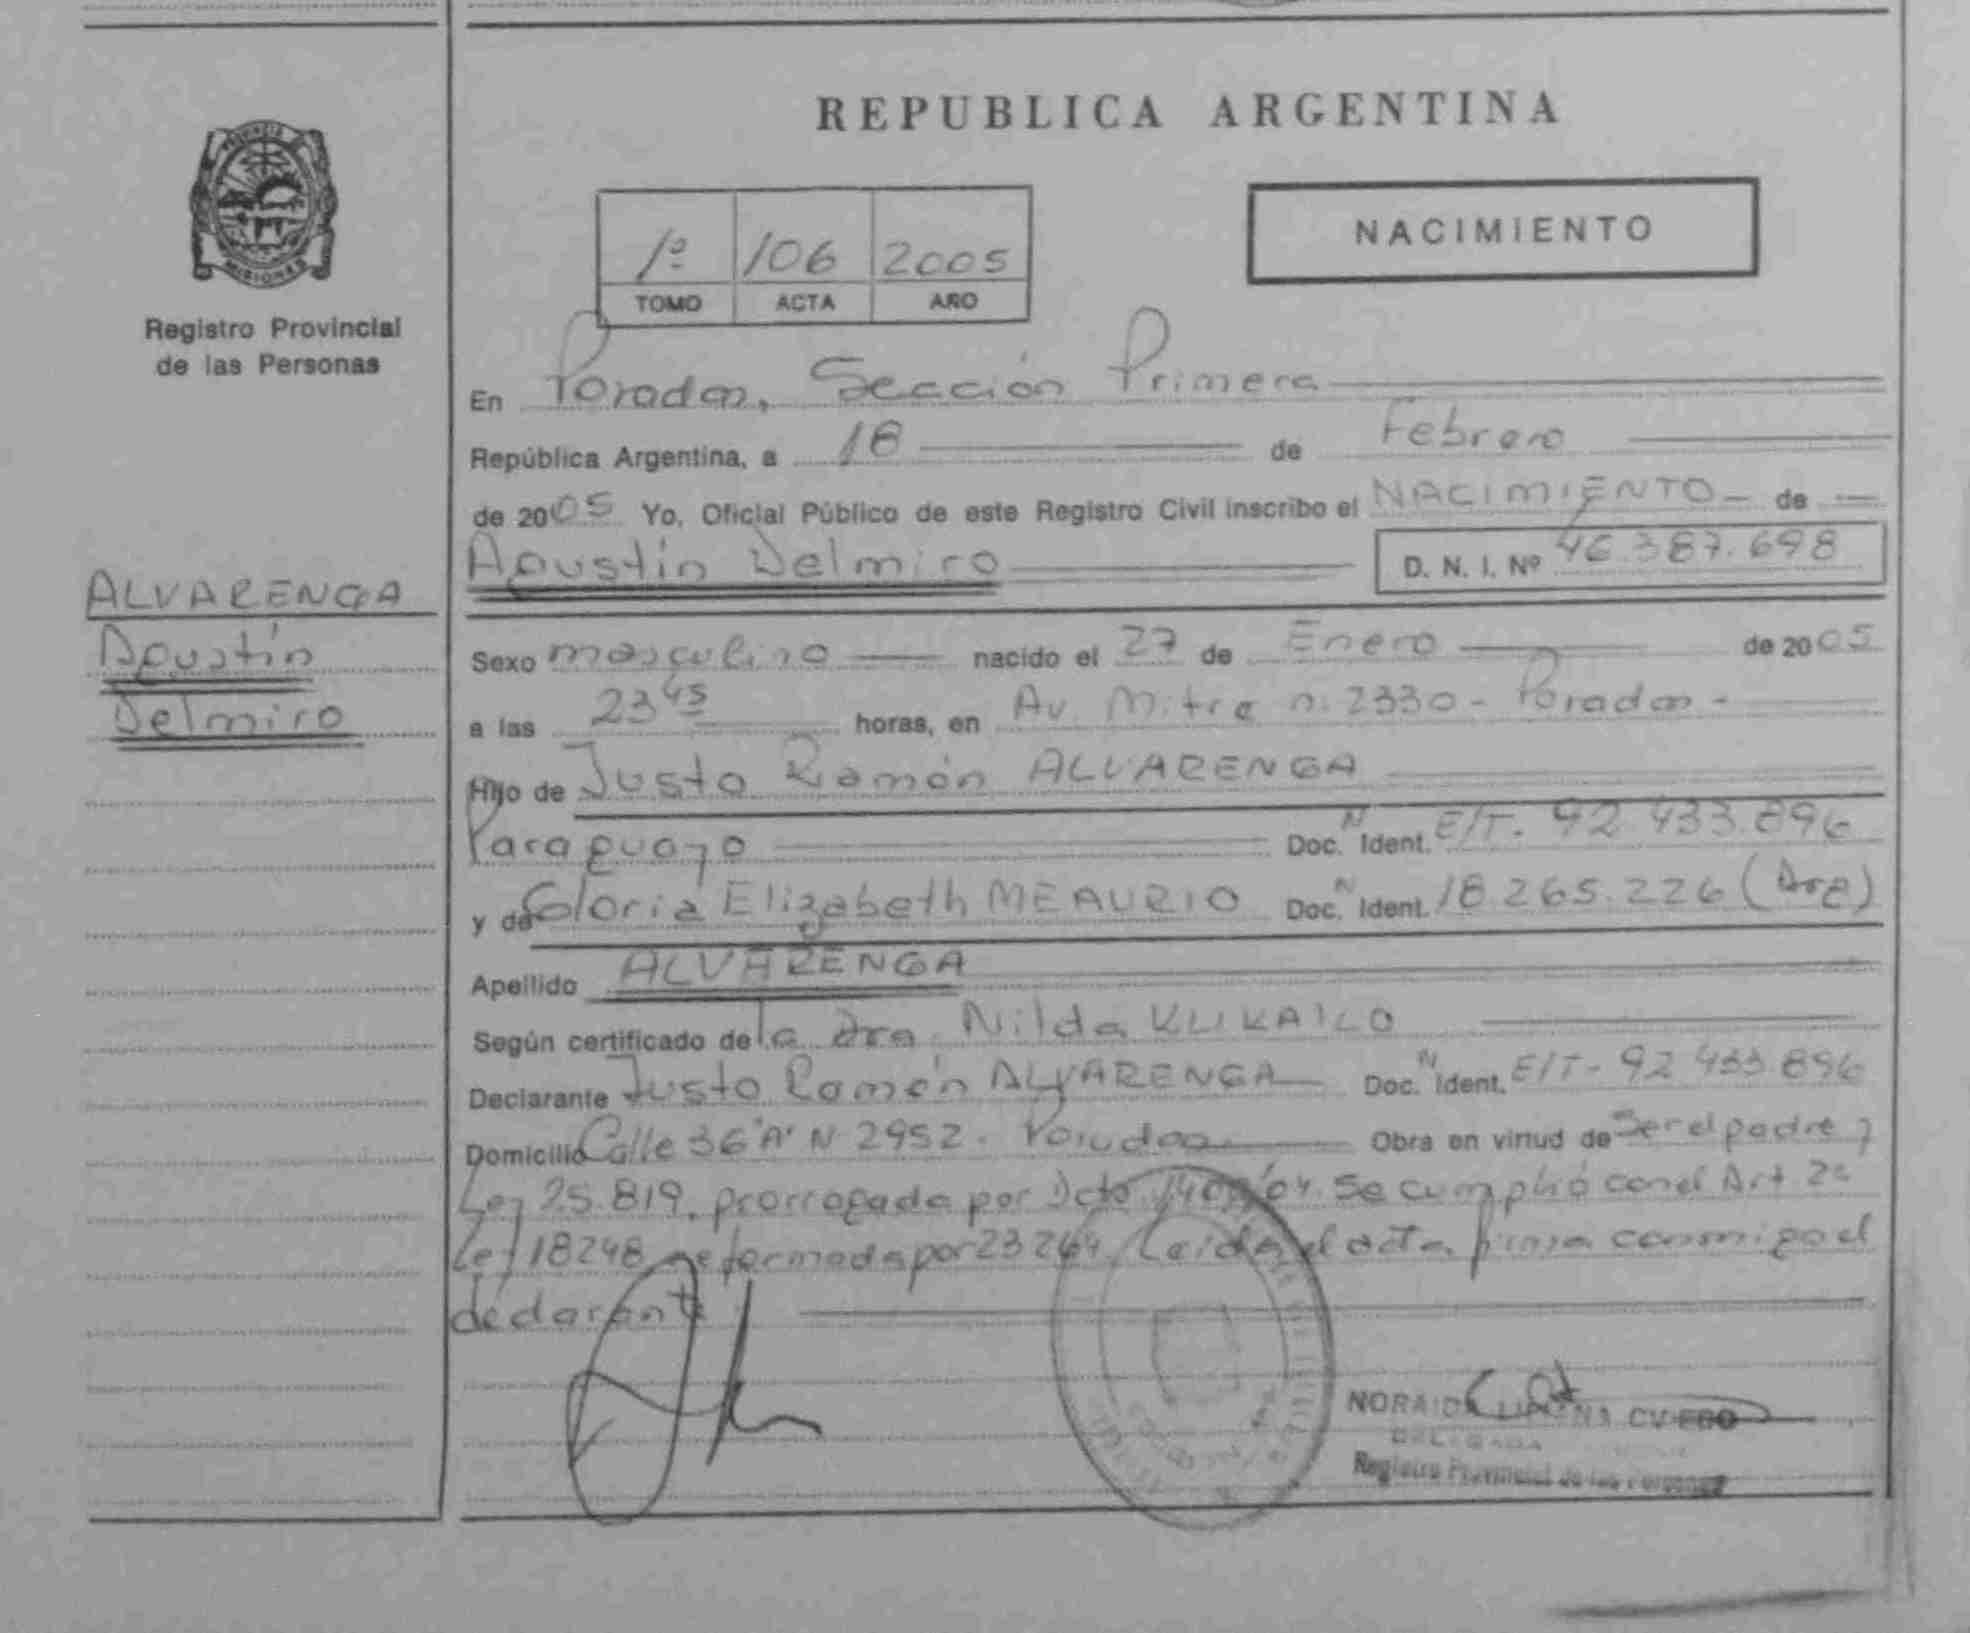 REPUBLICA ARGENTINA
NACIMIENTO
1º 106 2005
TOMO ACTA AÑO
MISIONES
Registro Provincial
de las Personas
ALVARENGA
Agustín
Delmiro
En Posadas, Sección Primera
República Argentina, a 18 de Febrero
de 2005 Yo, Oficial Público de este Registro Civil inscribo el NACIMIENTO de
Agustín Delmiro D. N. I. Nº 46.387.698
Sexo masculino nacido el 27 de Enero de 2005
a las 23 45 horas, en Av. Mitre n. 2330 - Posadas -
Hijo de Justo Ramón ALVARENGA
Paraguayo Doc. N Ident. E/T. 92.433.896
y de Gloria Elizabeth MEAURIO Doc. N Ident. 18.265.226 (Arg)
Apellido ALVARENGA
Según certificado de la Dra. Nilda
Declarante Justo Ramón ALVARENGA Doc. N Ident. E/T - 92 433 896
Domicilio Calle 36 "A" N 2952. Posadas Obra en virtud de Ser el padre y
Ley 25.819, prorrogada por Dcto. se cumplió con el Art 2º
Ley 18248 reformada por 23264. Leída el acta, firma conmigo el
declarante
DELEGADA
Registro Provincial de las Personas